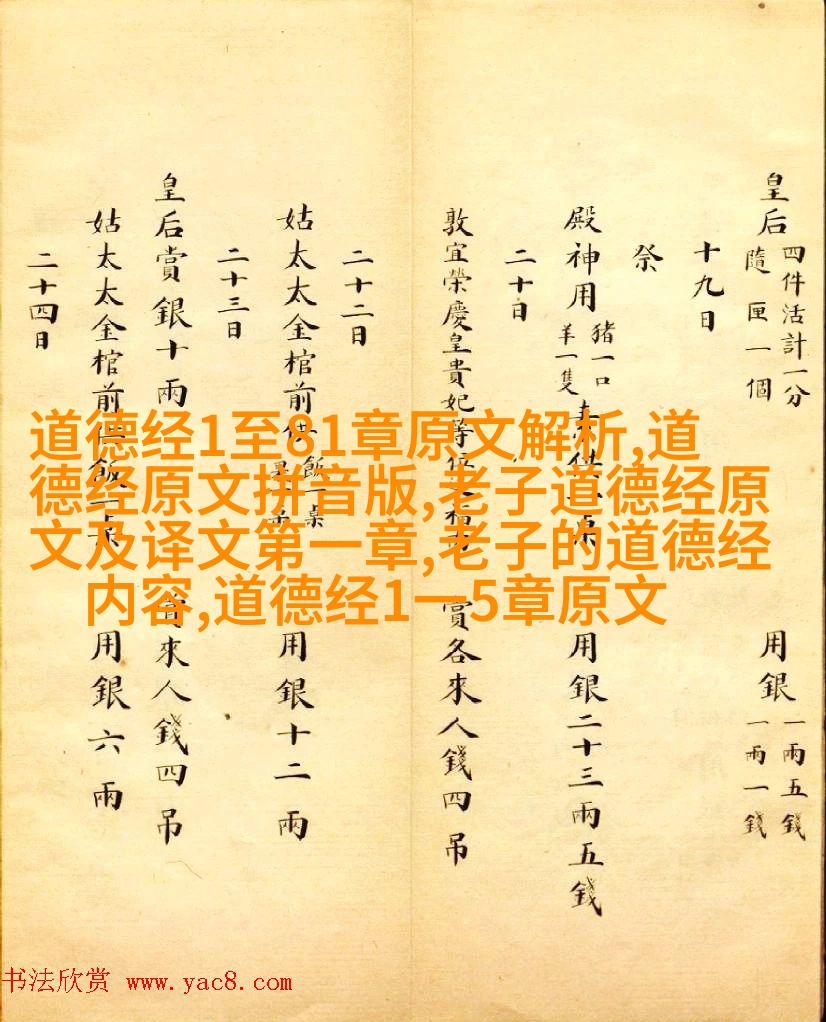 皇后 四件活計一分
隨匣一個
用銀 一兩五錢
一兩一錢
十九日
祭
殿神用 猪一口
羊一隻
用銀二十三兩五錢
二十日
敦宜榮慶皇貴妃等位
賞各來人錢四吊
二十二日
姑太太金棺前供 飯一桌
用銀十二兩
二十三日
皇后賞銀十兩
賞來人錢四吊
姑太太金棺前供飯一桌
用銀六兩
二十四日
道德经1至81章原文解析,道
德经原文拼音版,老子道德经原
文及译文第一章,老子的道德经
内容,道德经1一5章原文
书法欣赏 www.yac8.com